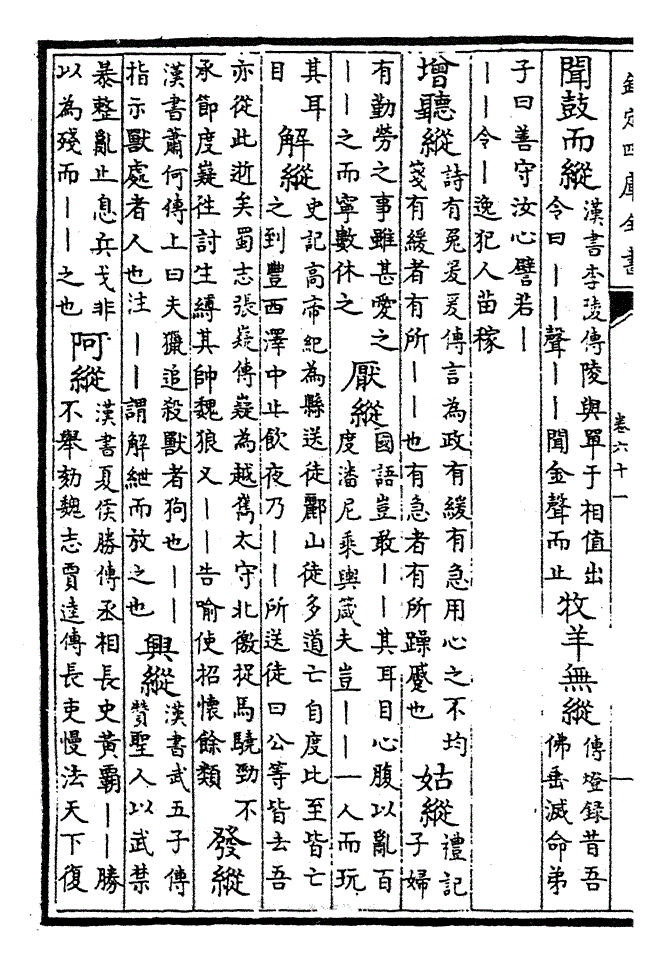 欽定四庫全書
卷六十一
一
聞鼓而縱
漢書李陵傳陵與單于相值出
令曰——聲——聞金聲而止
牧羊無縱
傳燈錄昔吾
佛垂滅命弟
子曰善守汝心譬若—
——令—逸犯人苗稼
增聽縱
詩有兔爰爰傳言為政有緩有急用心之不均
箋有緩者有所——也有急者有所躁蹙也
姑縱
禮記
子婦
有勤勞之事雖甚愛之
——之而寧數休之
厭縱
國語豈敢——其耳目心腹以亂百
度潘尼乘輿箴夫豈——一人而玩
其耳
目
解縱
史記高帝紀為縣送徒酈山徒多道亡自度比至皆亡
之到豐西澤中止飲夜乃——所送徒曰公等皆去吾
亦從此逝矣蜀志張嶷傳嶷為越嶲太守北徼捉馬驍勁不
承節度嶷往討生縛其帥魏狼又——告喻使招懷餘類
發縱
漢書蕭何傳上曰夫獵追殺獸者狗也——
指示獸處者人也注——謂解紲而放之也
興縱
漢書武五子傳
贊聖人以武禁
暴整亂止息兵戈非
以為殘而——之也
阿縱
漢書夏侯勝傳丞相長史黃霸——勝
不舉劾魏志賈逵傳長吏慢法天下復